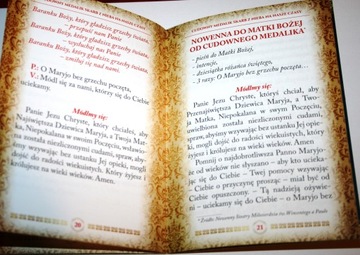 Baranku Boży, który gładzisz grzechy świata,
- przepuść nam Panie
Baranku Boży, który gładzisz grzechy świata,
- wysłuchaj nas Panie.
Baranku Boży, który gładzisz grzechy świata,
- zmiłuj się nad nami.
P.: O Maryjo bez grzechu poczęta,
W.: Módl się za nami, którzy się do Ciebie
uciekamy.
Módlmy się:
Panie Jezu Chryste, któryś chciał, aby
Najświętsza Dziewica Maryja, a Twoja Matka,
Niepokalana w swym Poczęciu,
wsławiona została niezliczonymi cudami, spraw, aby
śmy wzywając bez ustanku Jej opieki, mogli
dojść do radości wiekuistych. Który żyjesz i
królujesz na wieki wieków. Amen.
20
CUDOWNY MEDALIK SKARB Z NIEBA NA NASZE CZASY
NOWENNA DO MATKI BOŻEJ
OD CUDOWNEGO MEDALIKA
- pieśń do Matki Bożej,
- intencje,
- dziesiątka różańca świętego,
- 3 razy: O Maryjo bez grzechu poczęta...
Módlmy się:
Panie Jezu Chryste, któryś chciał, aby
Przenajświętsza Dziewica Maryja, a Two-
ja Matka, Niepokalana w swym Poczęciu,
wsławiona została niezliczonymi cudami,
spraw, abyśmy wzywając bez ustanku Jej opie-
ki, mogli dojść do radości wiekuistych, który
żyjesz i królujesz na wieki wieków. Amen
Pomnij o najdobrotliwsza Panno Maryjo-
że od wieków nie słyszano – aby kto ucieka-
jąc się do Ciebie – Twej pomocy wzywając
- Ciebie o przyczynę prosząc – miał być od
Ciebie opuszczony. – Tą nadzieją ożywie-
ni – uciekamy się do Ciebie – o Maryjo bez
21